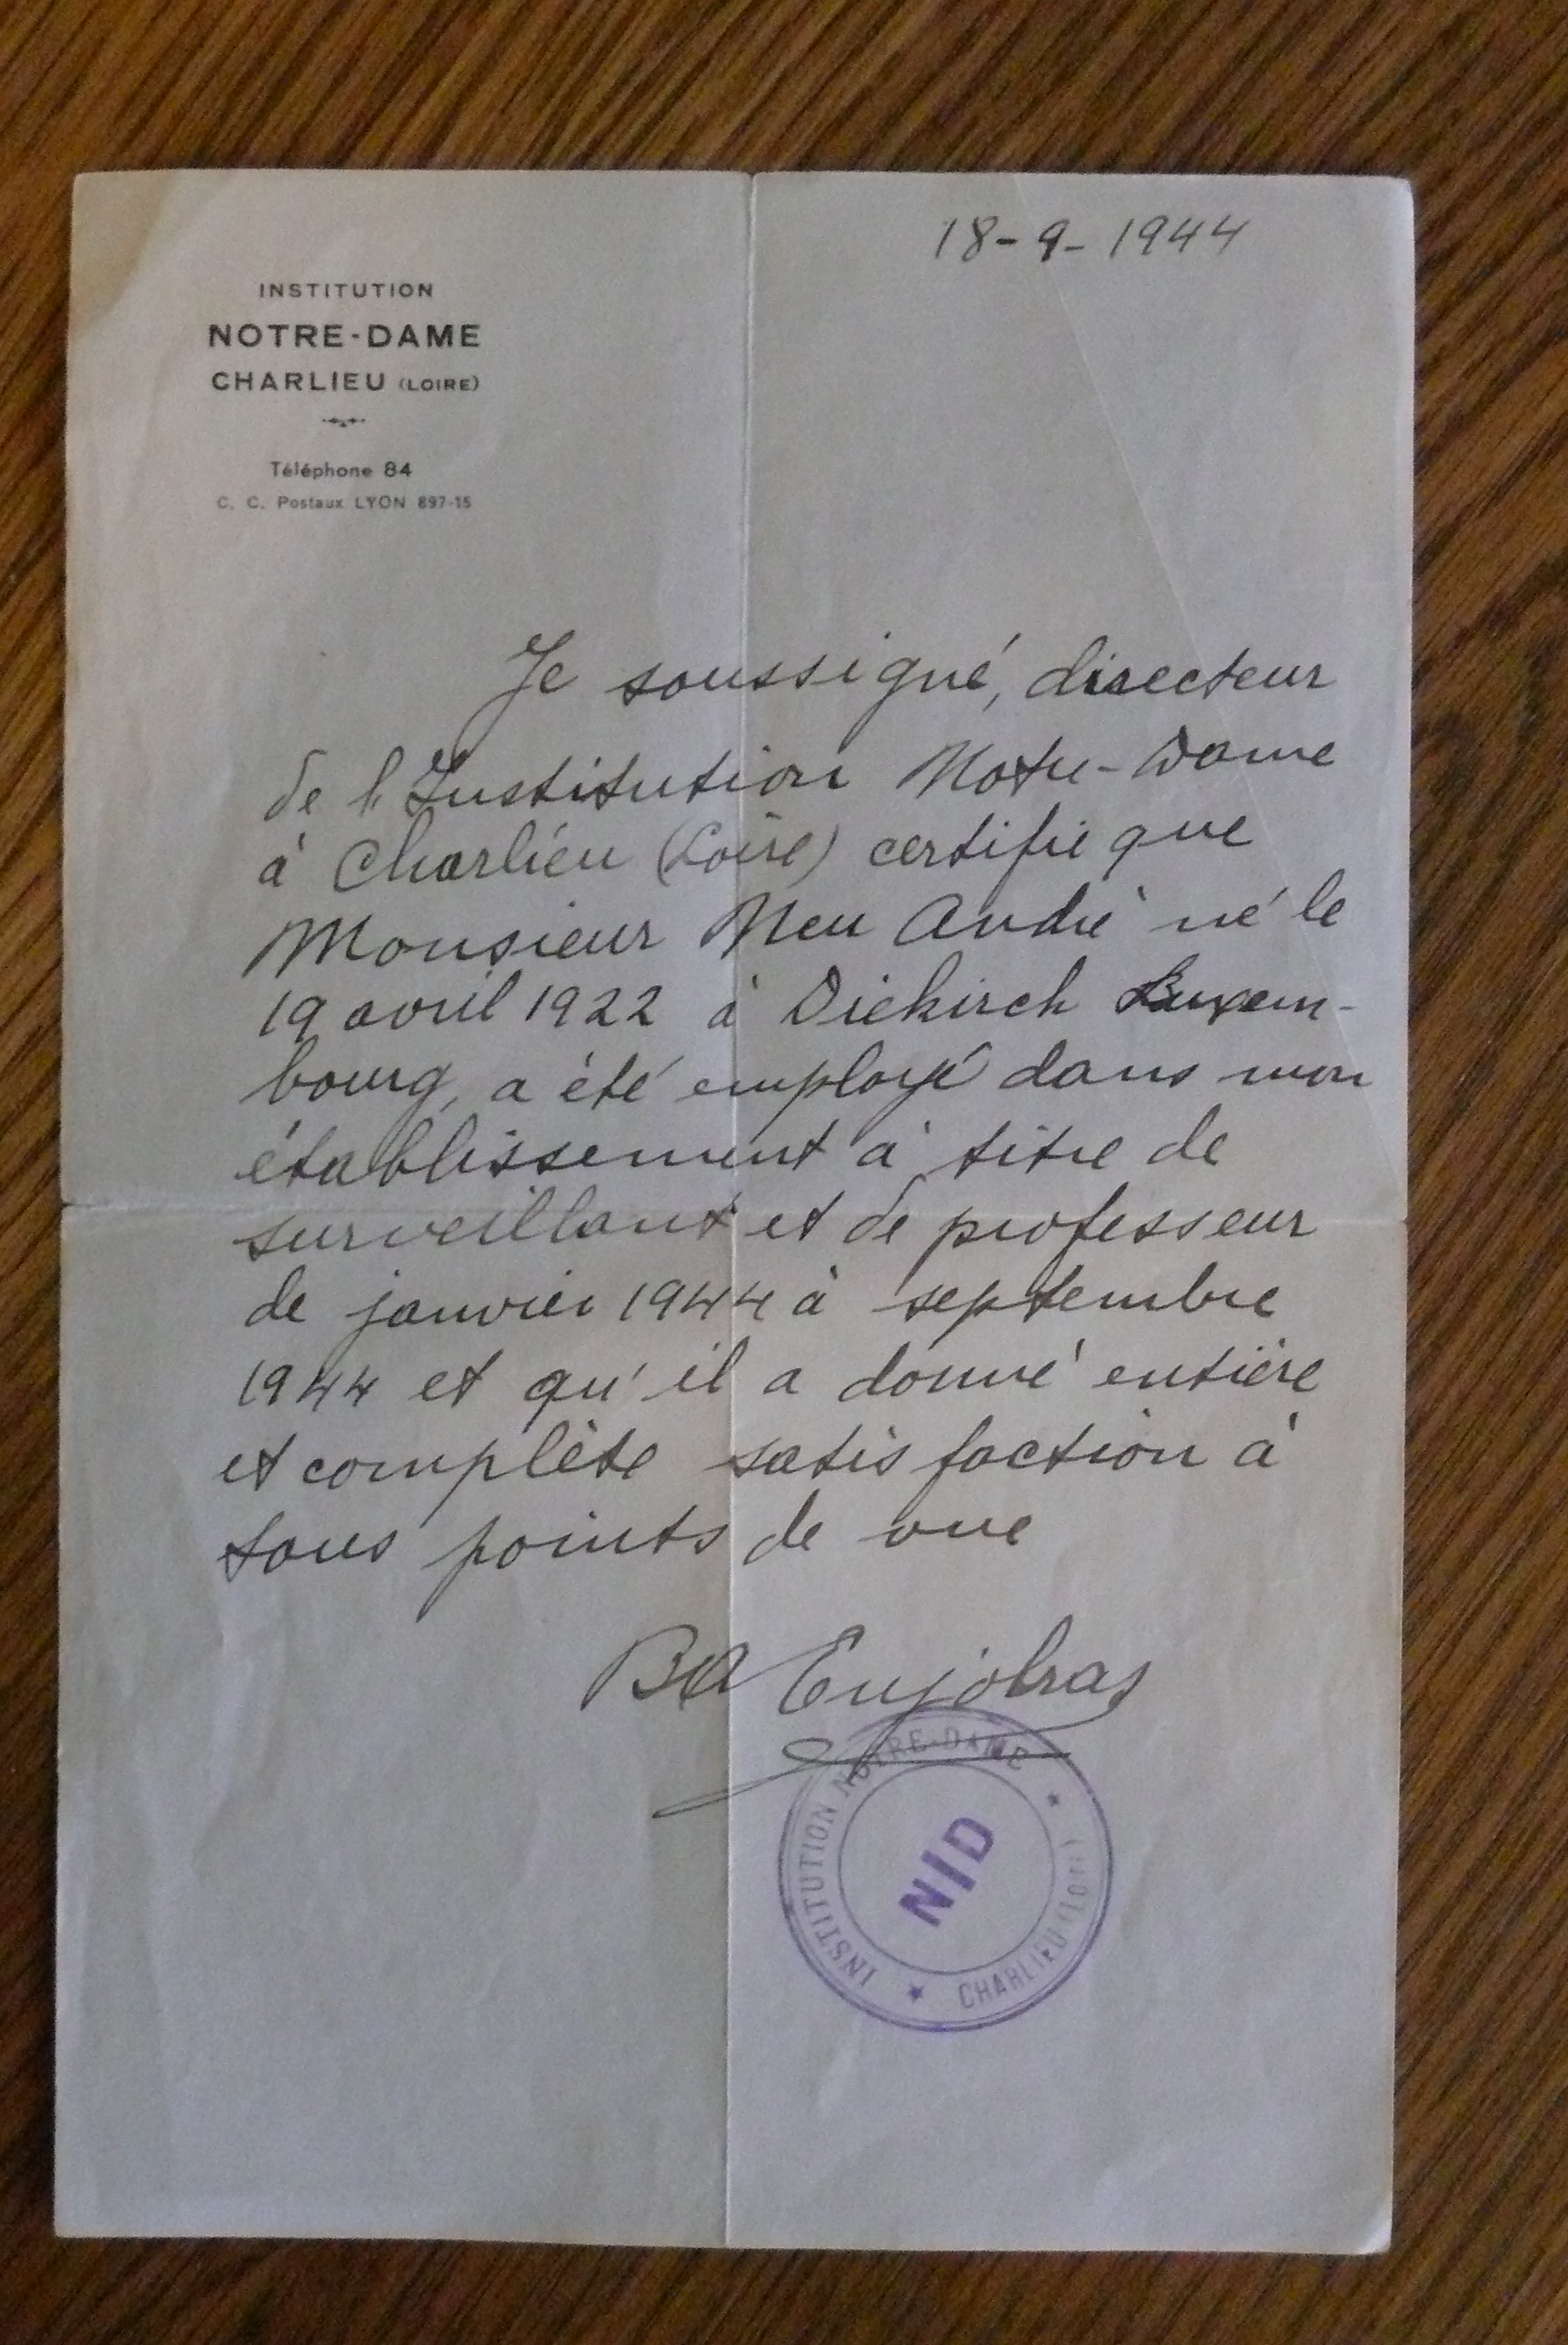 18-9-1944
INSTITUTION
NOTRE-DAME
CHARLIEU (LOIRE)
Téléphone 84
C. C. Postaux LYON 897-15
Je soussigné, directeur
de l'Institution Notre-Dame
à Charlieu (Loire) certifie que
Monsieur Neu André né le
19 avril 1922 à Diekirch Luxem-
bourg, a été employé dans mon
établissement à titre de
surveillant et de professeur
de janvier 1944 à septembre
1944 et qu'il a donné entière
et complète satisfaction à
tous points de vue
Enjolras
INSTITUTION NOTRE-DAME
NID
CHARLIEU